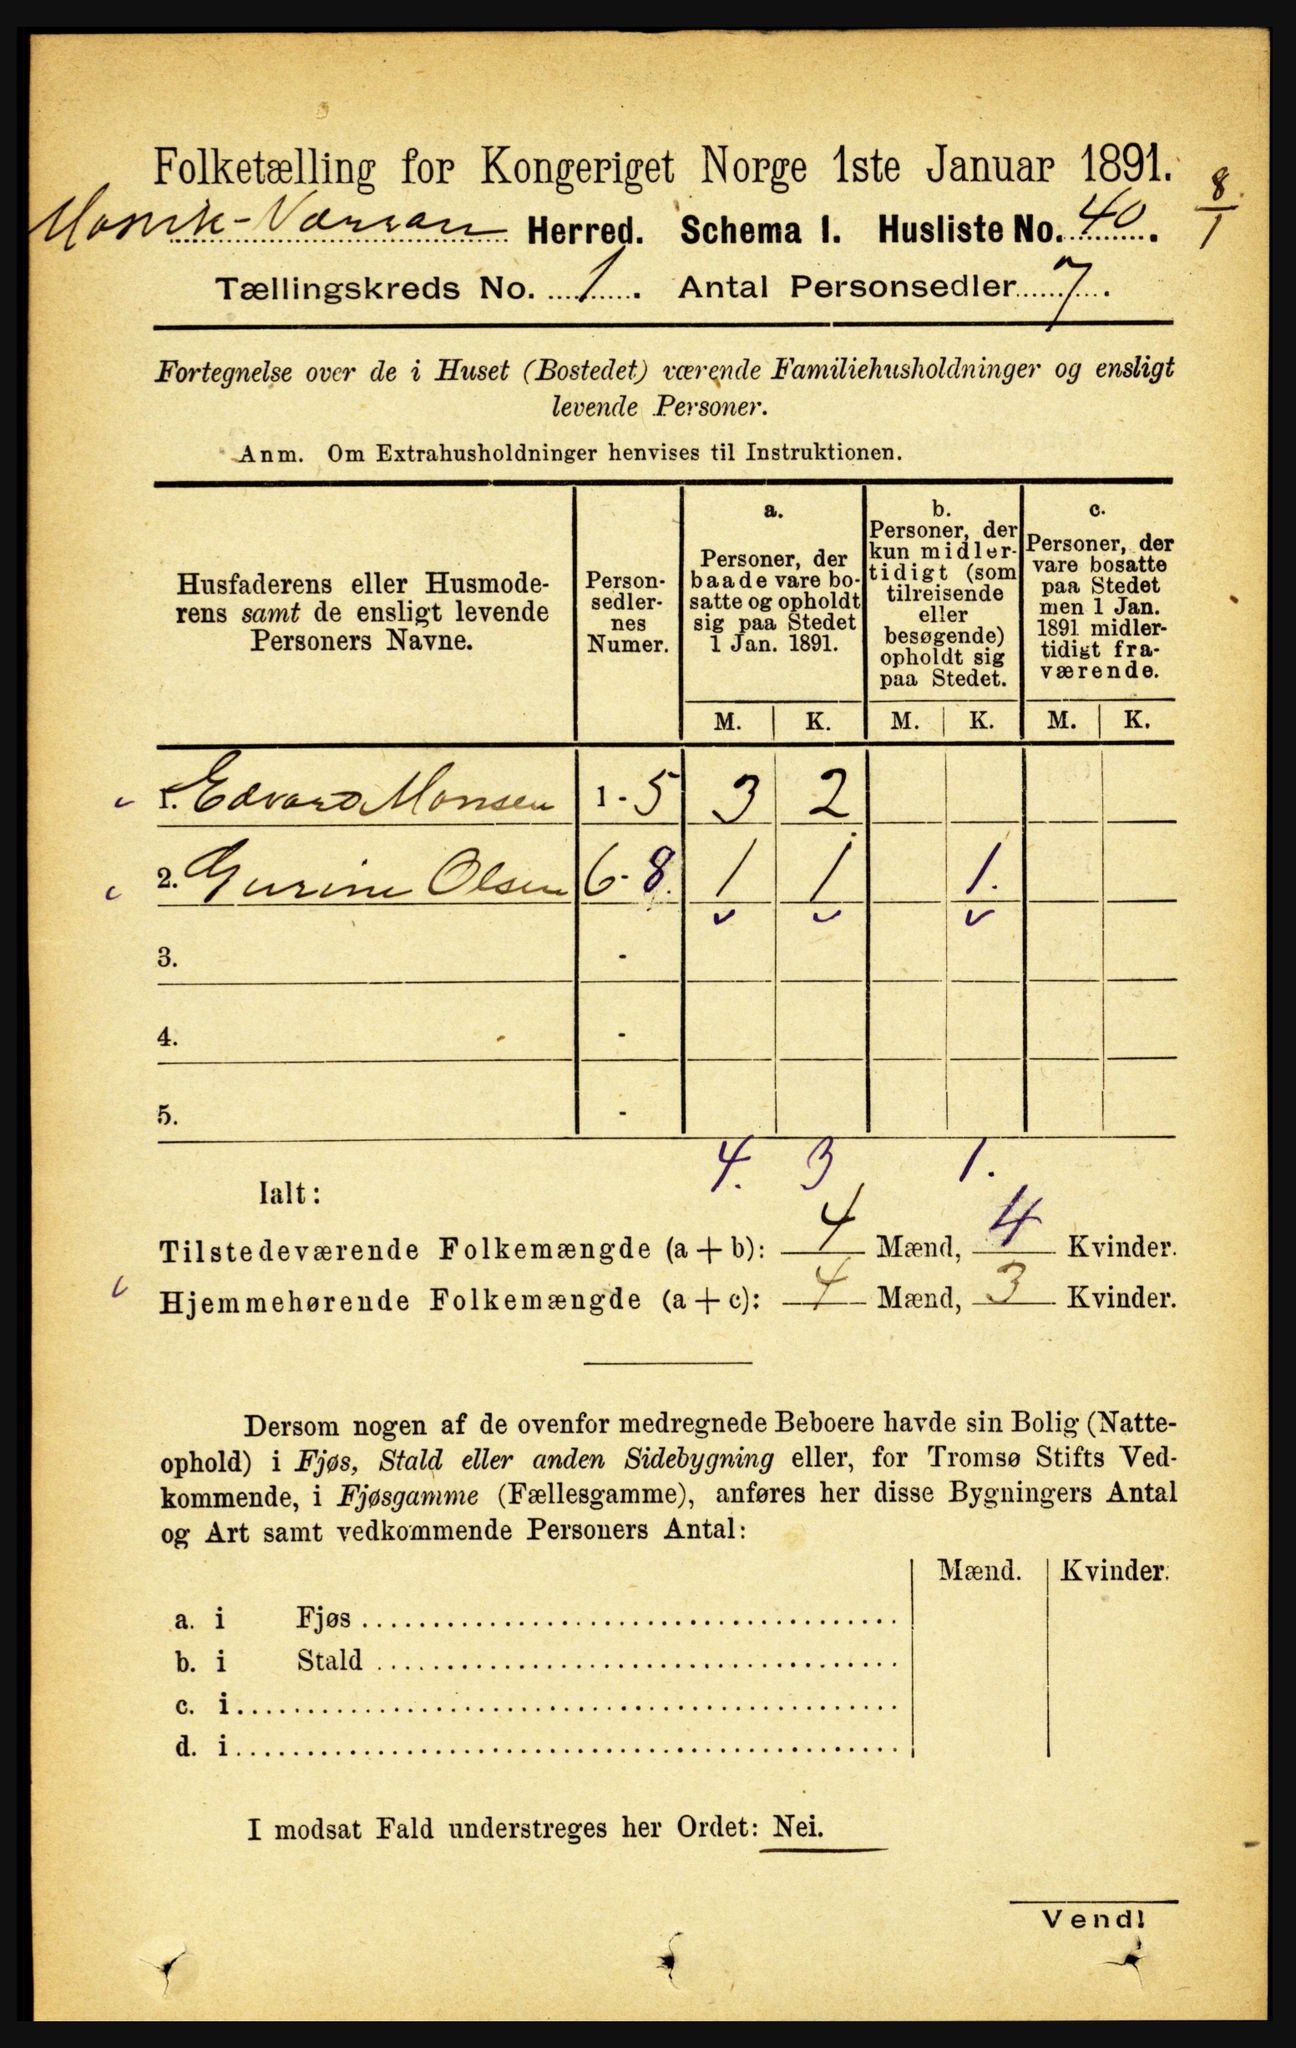 Folketælling for Kongeriget Norge 1ste Januar 1891.
Mosvik-Værran Herred. Schema I. Husliste No. 40. 8/1
Tællingskreds No. 1. Antal Personsedler 7.
Fortegnelse over de i Huset (Bostedet) værende Familiehusholdninger og ensligt
levende Personer.
Anm. Om Extrahusholdninger henvises til Instruktionen.
Husfaderens eller Husmode-
rens samt de ensligt levende
Personers Navne.
Person-
sedler-
nes
Numer.
a.
Personer, der
baade vare bo-
satte og opholdt
sig paa Stedet
1 Jan. 1891.
b.
Personer, der
kun midler-
tidigt (som
tilreisende
eller
besøgende)
opholdt sig
paa Stedet.
c.
Personer, der
vare bosatte
paa Stedet
men 1 Jan.
1891 midler-
tidigt fra-
værende.
M. K. M. K. M. K.
1. Edvard Monsen 1 - 5 3 2
2. Gurine Olsen 6 - 8. 1 1 1.
3. -
4. -
5. -
4. 3 1.
Ialt:
Tilstedeværende Folkemængde (a + b): 4 Mænd, 4 Kvinder.
Hjemmehørende Folkemængde (a + c): 4 Mænd, 3 Kvinder.
Dersom nogen af de ovenfor medregnede Beboere havde sin Bolig (Natte-
ophold) i Fjøs, Stald eller anden Sidebygning eller, for Tromsø Stifts Ved-
kommende, i Fjøsgamme (Fællesgamme), anføres her disse Bygningers Antal
og Art samt vedkommende Personers Antal:
Mænd. Kvinder.
a. i Fjøs
b. i Stald
c. i
d. i
I modsat Fald understreges her Ordet: Nei.
Vend!